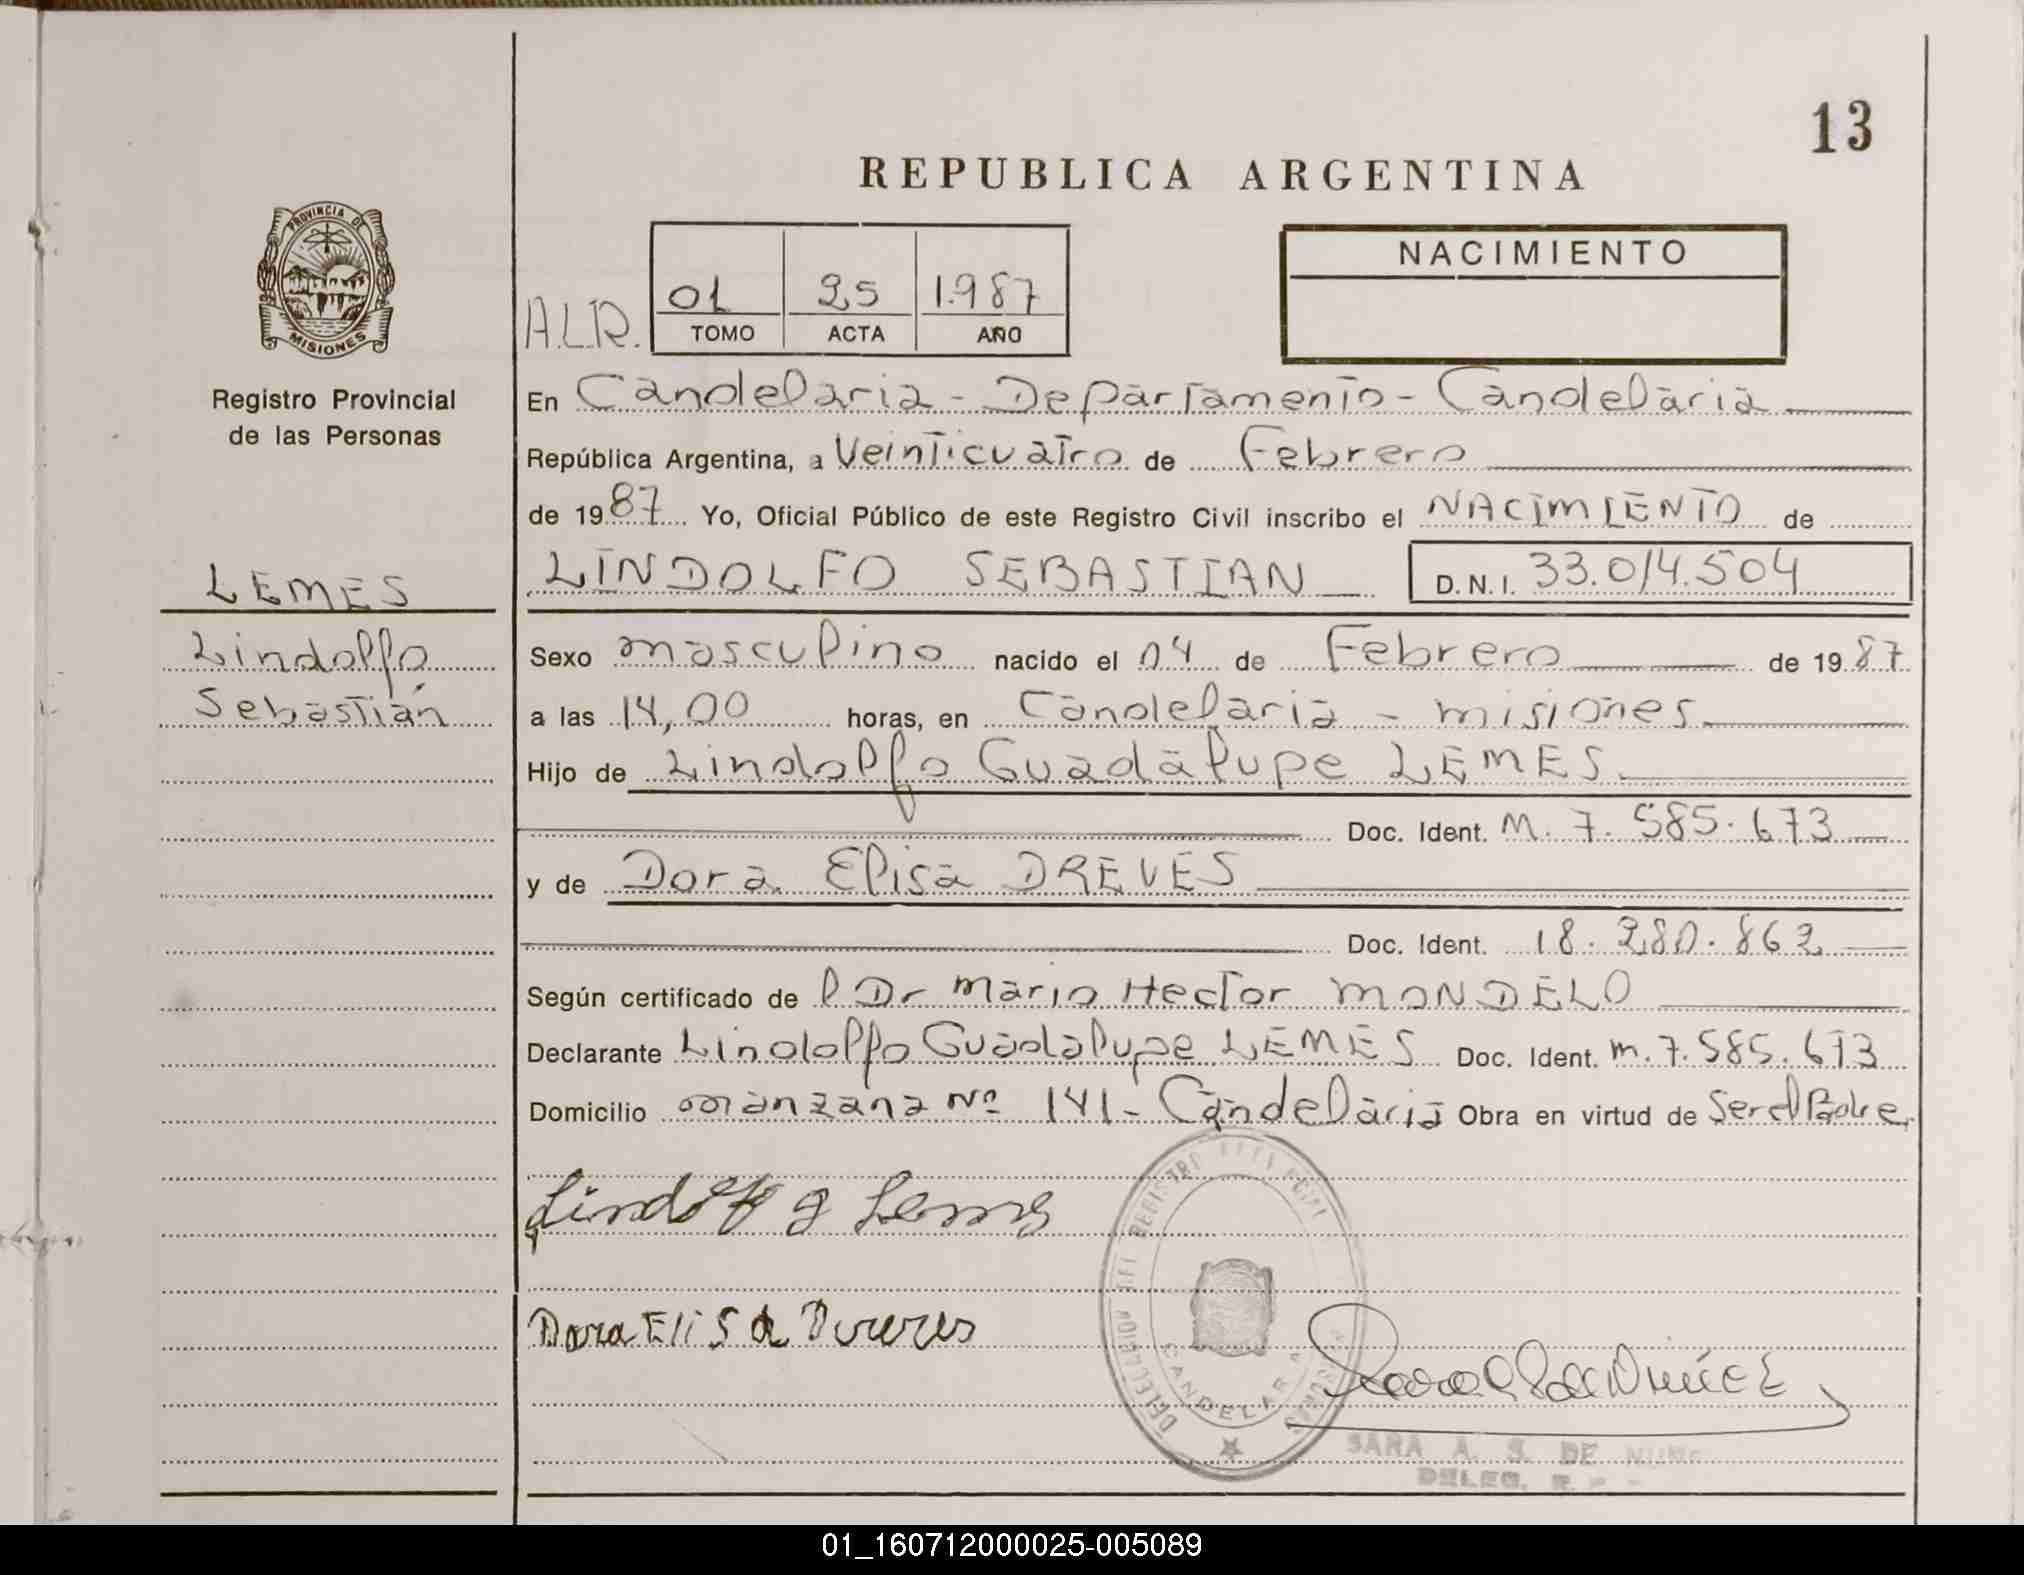 13
REPUBLICA ARGENTINA
PROVINCIA DE
MISIONES
Registro Provincial
de las Personas
A.L.R.
01 25 1.987
TOMO ACTA AÑO
NACIMIENTO
En Candelaria - Departamento - Candelaria
República Argentina, a Veinticuatro de Febrero
de 1987 Yo, Oficial Público de este Registro Civil inscribo el NACIMIENTO de
LEMES
LINDOLFO SEBASTIAN D.N.I. 33.014.504
Lindolfo
Sebastián
Sexo masculino nacido el 04 de Febrero de 1987
a las 14,00 horas, en Candelaria - misiones
Hijo de Lindolfo Guadalupe LEMES
Doc. Ident. M. 7. 585. 673
y de Dora Elisa DREVES
Doc. Ident. 18. 280. 862
Según certificado de l Dr Mario Hector MONDELO
Declarante Lindolfo Guadalupe LEMES Doc. Ident. m. 7. 585. 673
Domicilio manzana Nº 141 - Candelaria Obra en virtud de Ser el Padre
Lindolfo g Lemes
Dora Elisa Dreves
CANDELARIA
SARA A. S. DE
DELEG. R.
01_160712000025-005089